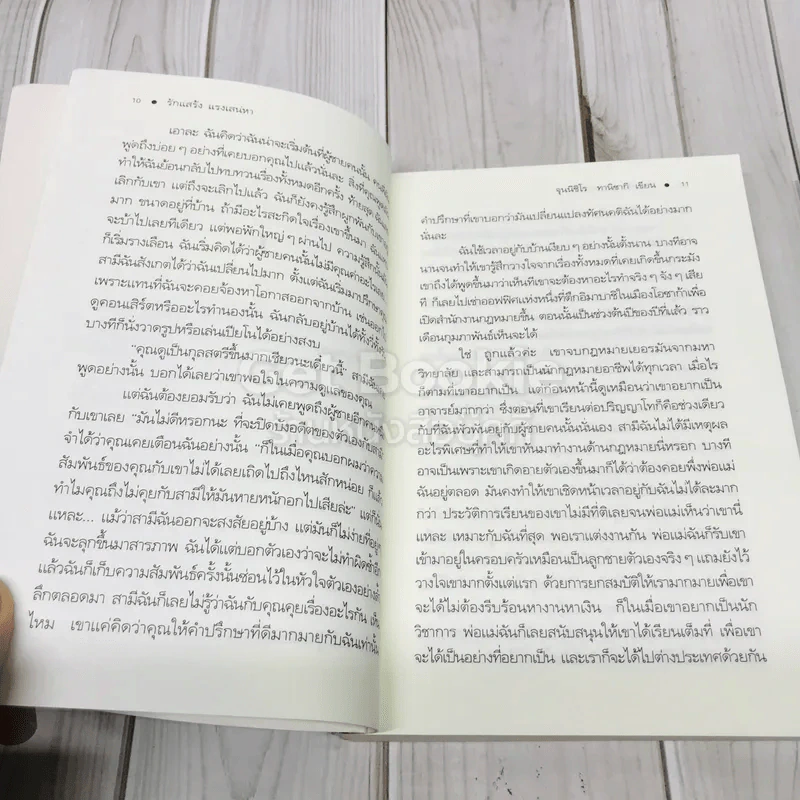 10 • รักแสร้ง แรงเสน่หา
เอาละ ฉันคิดว่าฉันน่าจะเริ่มต้นที่ผู้ชายคนนั้น คนที่ฉัน
พูดถึงบ่อย ๆ อย่างที่เคยบอกคุณไปแล้วนั่นละ สิ่งที่คุณเตือน
ทำให้ฉันย้อนกลับไปทบทวนเรื่องทั้งหมดอีกครั้ง ท้ายสุด ฉันก็
เลิกกับเขา แต่ถึงจะเลิกไปแล้ว ฉันก็ยังคงรู้สึกผูกพันกับ
มาก ขนาดอยู่ที่บ้าน ถ้ามีอะไรสะกิดใจเรื่องเขาขึ้นมา ฉัน
จะบ้าไปเลยทีเดียว แต่พอพักใหญ่ ๆ ผ่านไป ความรู้สึกนั้น
ก็เริ่มรางเลือน ฉันเริ่มคิดได้ว่าผู้ชายคนนั้นไม่มีคุณค่าอะไร
สามีฉันสังเกตได้ว่าฉันเปลี่ยนไปมาก ตั้งแต่ฉันเริ่มมาปรึกษา
เพราะแทนที่ฉันจะคอยจ้องหาโอกาสออกจากบ้าน เช่นออกไป
ดูคอนเสิร์ตหรืออะไรทำนองนั้น ฉันกลับอยู่บ้านได้ทั้งวี่ทั้ง
บางทีก็นั่งวาดรูปหรือเล่นเปียโนได้อย่างสงบ
“คุณดูเป็นกุลสตรีขึ้นมากเชียวนะเดี๋ยวนี้” สามีฉัน
พูดอย่างนั้น บอกได้เลยว่าเขาพอใจในความดูแลของคุณ
แต่ฉันต้องยอมรับว่า ฉันไม่เคยพูดถึงผู้ชายอีกคน
กับเขาเลย “มันไม่ดีหรอกนะ ที่จะปิดบังอดีตของตัวเองกับสามี
จำได้ว่าคุณเคยเตือนฉันอย่างนั้น “ก็ในเมื่อคุณบอกผมว่าความ
สัมพันธ์ของคุณกับเขาไม่ได้เลยเถิดไปถึงไหนสักหน่อย ก็แล้ว
ทำไมคุณถึงไม่คุยกับสามีให้มันหายหนักอกไปเสียล่ะ” แต่ก็นั่น
แหละ... แม้ว่าสามีฉันออกจะสงสัยอยู่บ้าง แต่มันก็ไม่ง่ายที่อยู่ ๆ
ฉันจะลุกขึ้นมาสารภาพ ฉันได้แต่บอกตัวเองว่าจะไม่ทำผิดซ้ำอีก
แล้วฉันก็เก็บความสัมพันธ์ครั้งนั้นซ่อนไว้ในหัวใจตัวเองอย่างล้ำ
ลึกตลอดมา สามีฉันก็เลยไม่รู้ว่าฉันกับคุณคุยเรื่องอะไรกัน เห็น
ไหม เขาแค่คิดว่าคุณให้คำปรึกษาที่ดีมากมายกับฉันเท่านั้น
จุนนิชิโร ทานิซากิ เขียน • 11
คำปรึกษาที่เขาบอกว่ามันเปลี่ยนแปลงทัศนคติฉันได้อย่างมาก
นั่นละ
ฉันใช้เวลาอยู่กับบ้านเงียบ ๆ อย่างนั้นตั้งนาน บางทีอาจ
นานจนทำให้เขารู้สึกวางใจจากเรื่องทั้งหมดที่เคยเกิดขึ้นกระมัง
เขาถึงได้พูดขึ้นมาว่าเห็นทีเขาจะต้องหาอะไรทำจริง ๆ จัง ๆ เสีย
ที ก็เลยไปเช่าออฟฟิศแห่งหนึ่งที่ตึกอิมาบาชิในเมืองโอซาก้าเพื่อ
เปิดสำนักงานกฎหมายขึ้น ตอนนั้นเป็นช่วงต้นปีของปีที่แล้ว ราว
เดือนกุมภาพันธ์เห็นจะได้
ใช่ ถูกแล้วค่ะ เขาจบกฎหมายเยอรมันจากมหา
วิทยาลัย และสามารถเป็นนักกฎหมายอาชีพได้ทุกเวลา เมื่อไร
ก็ตามที่เขาอยากเป็น แต่ก่อนหน้านี้ดูเหมือนว่าเขาอยากเป็น
อาจารย์มากกว่า ซึ่งตอนที่เขาเรียนต่อปริญญาโทก็คือช่วงเดียว
กับที่ฉันพัวพันอยู่กับผู้ชายคนนั้นนั่นเอง สามีฉันไม่ได้มีเหตุผล
อะไรพิเศษที่ทำให้เขาหันมาทำงานด้านกฎหมายนี่หรอก บางที
อาจเป็นเพราะเขาเกิดอายตัวเองขึ้นมาก็ได้ว่าต้องคอยพึ่งพ่อแม่
ฉันอยู่ตลอด มันคงทำให้เขาเชิดหน้าเวลาอยู่กับฉันไม่ได้ละมาก
กว่า ประวัติการเรียนของเขาไม่มีที่ติเลยจนพ่อแม่เห็นว่าเขานี่
แหละ เหมาะกับฉันที่สุด พอเราแต่งงานกัน พ่อแม่ฉันก็รับเขา
เข้ามาอยู่ในครอบครัวเหมือนเป็นลูกชายตัวเองจริง ๆ แถมยังไว้
วางใจเขามากตั้งแต่แรก ด้วยการยกสมบัติให้เรามากมายเพื่อเขา
จะได้ไม่ต้องรีบร้อนหางานหาเงิน ก็ในเมื่อเขาอยากเป็นนัก
วิชาการ พ่อแม่ฉันก็เลยสนับสนุนให้เขาได้เรียนเต็มที่ เพื่อเขา
จะได้เป็นอย่างที่อยากเป็น และเราก็จะได้ไปต่างประเทศด้วยกัน